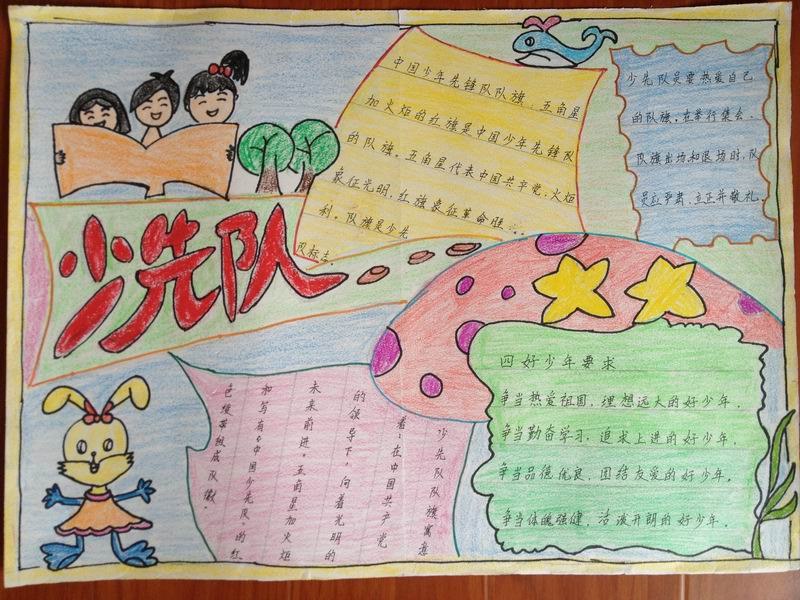 少先队
中国少年先锋队队旗,五角星
加火炬的红旗是中国少年先锋队
的队旗。五角星代表中国共产党,火炬
象征光明,红旗象征革命胜
利。队旗是少先
队标志。
少先队员要热爱自己
的队旗。在举行集会、
队旗出场和退场时,队
员应严肃,立正并敬礼。
四好少年要求
争当热爱祖国,理想远大的好少年,
争当勤奋学习,追求上进的好少年,
争当品德优良,团结友爱的好少年,
争当体魄强健,活泼开朗的好少年.
少先队队旗寓意
着:在中国共产党
的领导下,向着光明的
未来前进。五角星加火炬
和写有"中国少先队"的红
色绶带组成队徽.